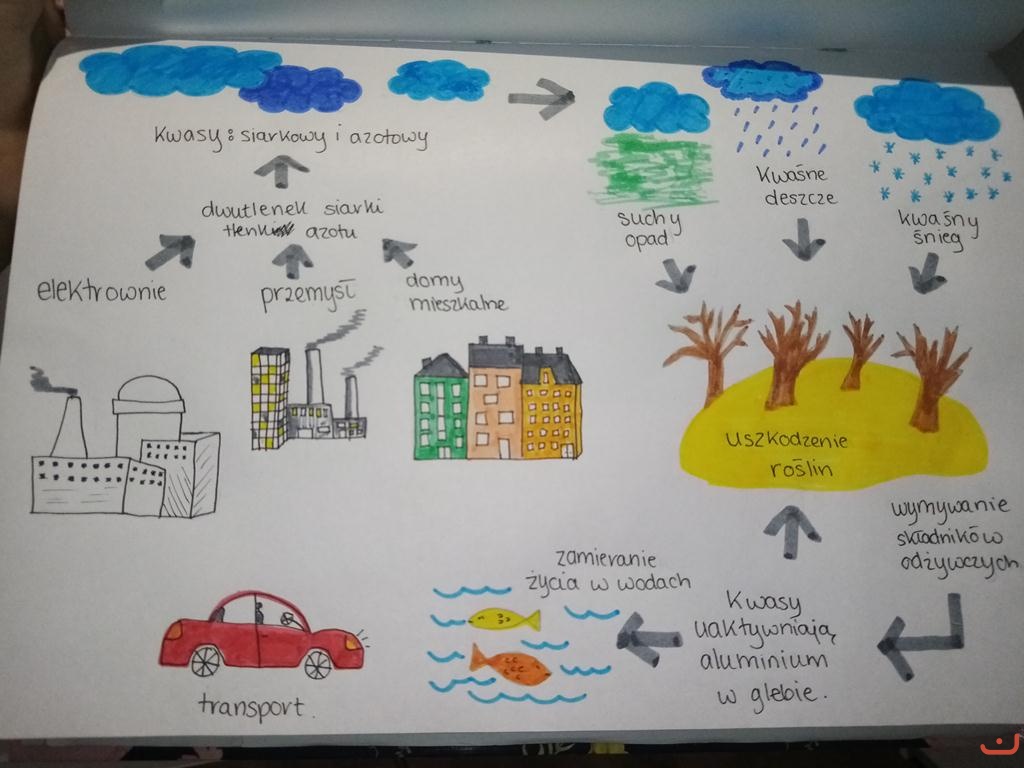 kwasy: siarkowy i azotowy
dwutlenek siarki
tlenki azotu
elektrownie
przemysł
domy
mieszkalne
transport.
suchy
opad
kwaśne
deszcze
kwaśny
śnieg
uszkodzenie
roślin
wymywanie
składników
odżywczych
Kwasy
uaktywniają
aluminium
w glebie.
zamieranie
życia w wodach